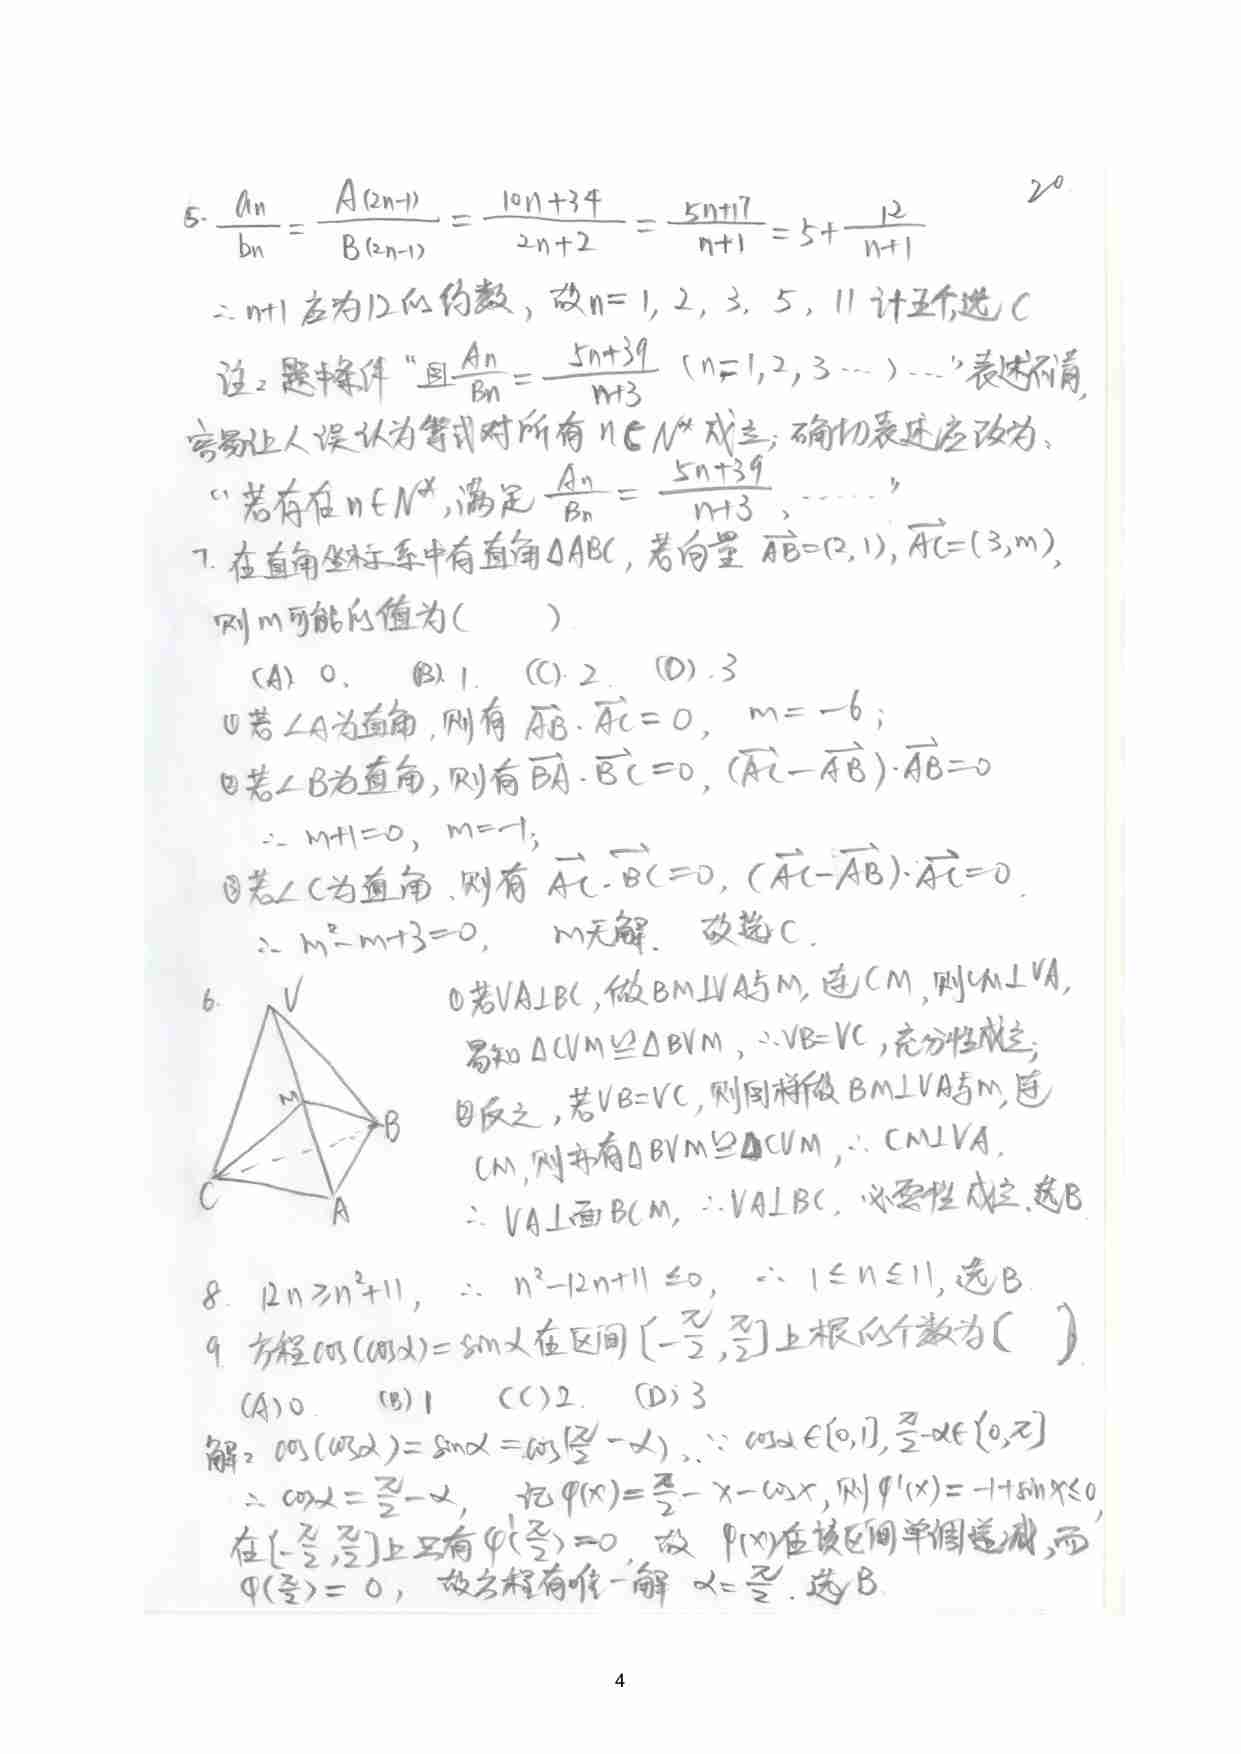 20
5. an/bn = A(2n-1)/B(2n-1) = (10n+34)/(2n+2) = (5n+17)/(n+1) = 5+12/(n+1)
∴ n+1应为12的约数, 故n=1, 2, 3, 5, 11 计五个,选C
注: 题中条件“且An/Bn = (5n+39)/(n+3) (n=1,2,3…)…”表述不清,
容易让人误认为等式对所有n∈N*成立; 确切表述应改为:
“若存在n∈N*,满足 An/Bn = (5n+39)/(n+3), ……”
7. 在直角坐标系中有直角△ABC, 若向量 AB=(2,1), AC=(3,m),
则m可能的值为( )
(A) 0. (B) 1. (C). 2. (D). 3
①若∠A为直角, 则有 AB·AC=0, m=-6;
②若∠B为直角, 则有BA·BC=0, (AC-AB)·AB=0
∴ m+1=0, m=-1;
③若∠C为直角, 则有 AC·BC=0, (AC-AB)·AC=0.
∴ m²-m+3=0, m无解. 故选C.
6.
V
M
B
C
A
①若VA⊥BC, 做BM⊥VA与M, 连CM, 则CM⊥VA,
易知△CVM≌△BVM, ∴VB=VC, 充分性成立;
②反之, 若VB=VC, 则同样做BM⊥VA与M, 连
CM, 则亦有△BVM≌△CVM, ∴ CM⊥VA.
∴ VA⊥面BCM, ∴VA⊥BC. 必要性成立.选B
8. 12n≥n²+11, ∴ n²-12n+11≤0, ∴ 1≤n≤11, 选B.
9. 方程cos(cosα)=sinα在区间[-π/2,π/2]上根的个数为( )
(A) 0. (B) 1 (C) 2. (D) 3
解: cos(cosα)=sinα=cos(π/2-α), ∵ cosα∈[0,1], π/2-α∈[0,π]
∴ cosα=π/2-α, 记φ(x)=π/2-x-cosx, 则φ'(x)=-1+sinx≤0,
在[-π/2,π/2]上只有φ'(π/2)=0, 故 φ(x)在该区间单调递减, 而
φ(π/2)=0, 故方程有唯一解 α=π/2. 选B
4